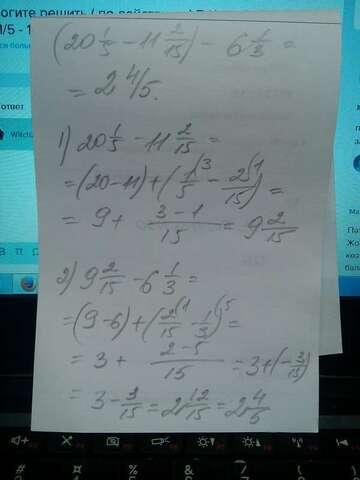 могите решить ( по действ
1/5 - 1
(20 1/5 - 11 2/15) - 6 1/3 =
= 2 4/5.
1) 20 1/5 - 11 2/15 =
= (20-11) + (1/5 (3 - 2/15 (1) =
= 9 + (3-1)/15 = 9 2/15
2) 9 2/15 - 6 1/3 =
= (9-6) + (2/15 (1 - 1/3 (5) =
= 3 + (2-5)/15 = 3 + (-3/15)
= 3 - 3/15 = 2 12/15 = 2 4/5